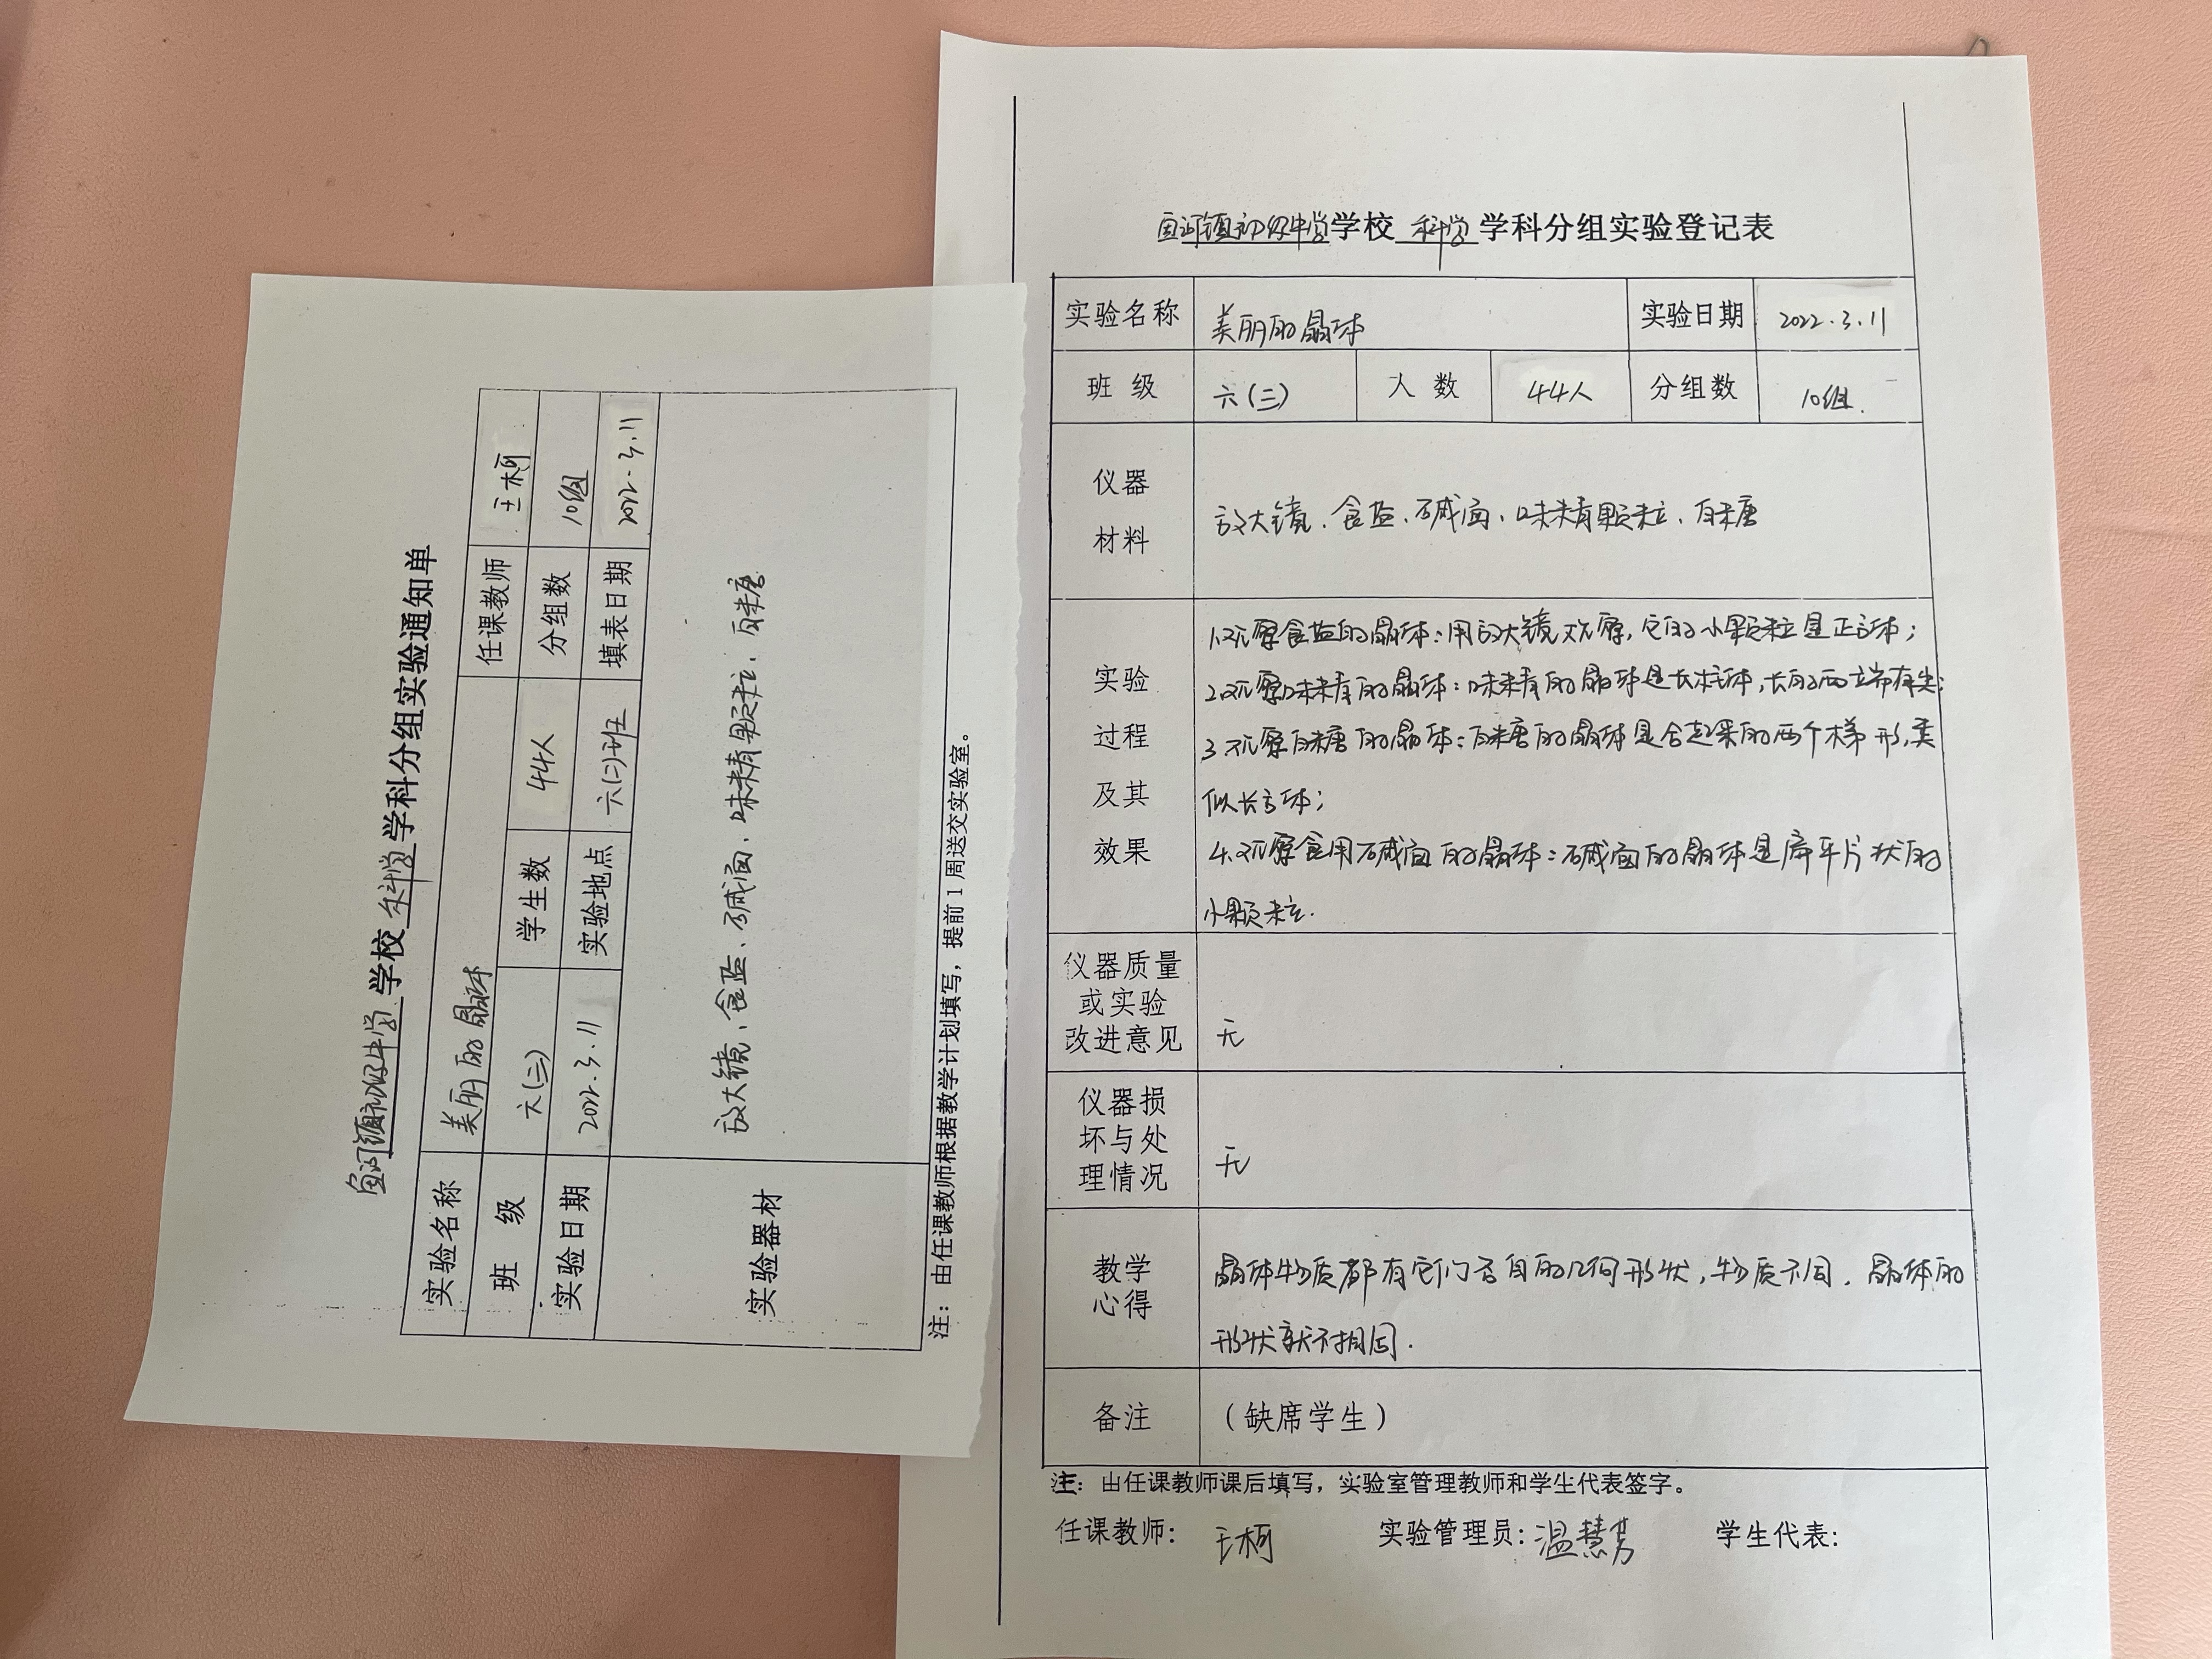 鱼河镇初级中学学校 科学 学科分组实验通知单
实验名称 美丽的晶体 任课教师 王柯
班 级 六(三) 学生数 44人 分组数 10组
实验日期 2022.3.11 实验地点 六(三)班 填表日期 2022.3.11
实验器材 放大镜、食盐、碱面、味精颗粒、白糖
注：由任课教师根据教学计划填写，提前1周送交实验室。
鱼河镇初级中学学校 科学 学科分组实验登记表
实验名称 美丽的晶体 实验日期 2022.3.11
班 级 六(三) 人 数 44人 分组数 10组.
仪器
材料
放大镜、食盐、碱面、味精颗粒、白糖
实验
过程
及其
效果
1.观察食盐的晶体：用放大镜观察，它的小颗粒是正方体；
2.观察味精的晶体：味精的晶体是长柱体，长的两端有尖；
3.观察白糖的晶体：白糖的晶体是合起来的两个梯形，类
似长方体；
4.观察食用碱面的晶体：碱面的晶体是扁平片状的
小颗粒.
仪器质量
或实验
改进意见
无
仪器损
坏与处
理情况
无
教学
心得
晶体物质都有它们各自的几何形状，物质不同，晶体的
形状就不相同.
备注 （缺席学生）
注：由任课教师课后填写，实验室管理教师和学生代表签字。
任课教师： 王柯 实验管理员：温慧芳 学生代表：